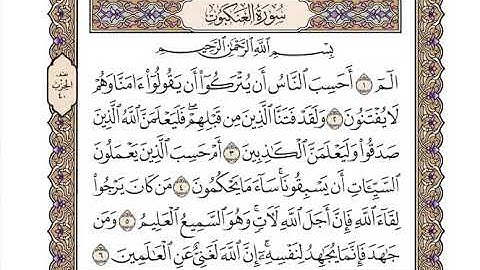 سُورَةُ العَنكَبُوتِ
بِسْمِ ٱللَّهِ ٱلرَّحْمَٰنِ ٱلرَّحِيمِ
نصف
الحزب
٤٠
الٓمٓ ١ أَحَسِبَ ٱلنَّاسُ أَن يُتْرَكُوٓا۟ أَن يَقُولُوٓا۟ ءَامَنَّا وَهُمْ
لَا يُفْتَنُونَ ٢ وَلَقَدْ فَتَنَّا ٱلَّذِينَ مِن قَبْلِهِمْ ۖ فَلَيَعْلَمَنَّ ٱللَّهُ ٱلَّذِينَ
صَدَقُوا۟ وَلَيَعْلَمَنَّ ٱلْكَٰذِبِينَ ٣ أَمْ حَسِبَ ٱلَّذِينَ يَعْمَلُونَ
ٱلسَّيِّـَٔاتِ أَن يَسْبِقُونَا ۚ سَآءَ مَا يَحْكُمُونَ ٤ مَن كَانَ يَرْجُوا۟
لِقَآءَ ٱللَّهِ فَإِنَّ أَجَلَ ٱللَّهِ لَـَٔاتٍ ۚ وَهُوَ ٱلسَّمِيعُ ٱلْعَلِيمُ ٥ وَمَن
جَٰهَدَ فَإِنَّمَا يُجَٰهِدُ لِنَفْسِهِۦٓ ۚ إِنَّ ٱللَّهَ لَغَنِىٌّ عَنِ ٱلْعَٰلَمِينَ ٦